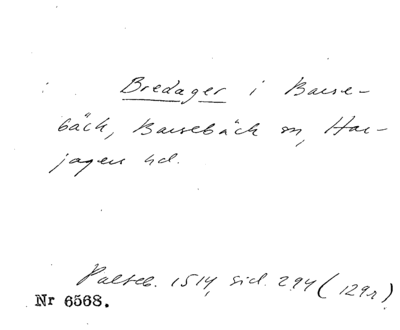 Bredager i Barse-
bäck, Barsebäck sn, Har-
jagers hd.
Palteb. 1514, sid. 294 (129r)
Nr 6568.